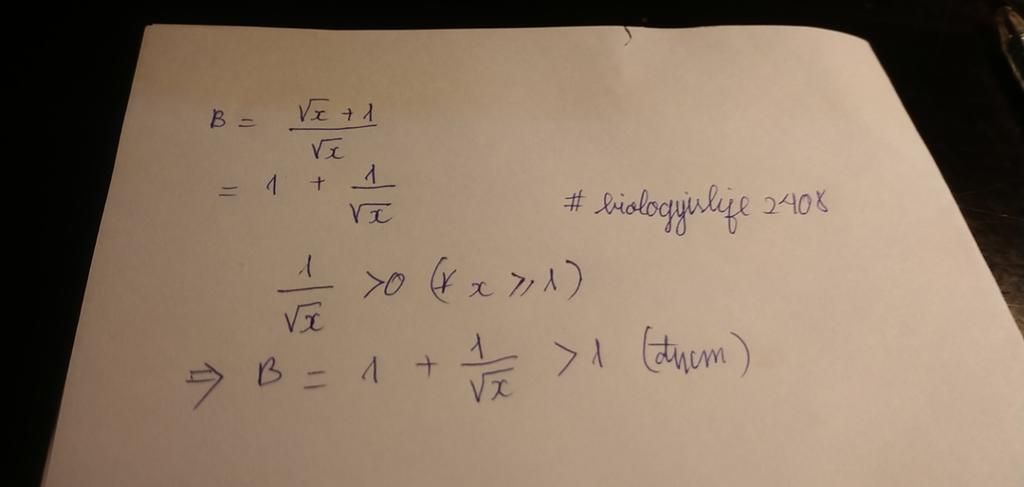 B = \frac{\sqrt{x} + 1}{\sqrt{x}}
= 1 + \frac{1}{\sqrt{x}}
# biologyislife 2408
\frac{1}{\sqrt{x}} > 0 (∀ x ⩾ 1)
⇒ B = 1 + \frac{1}{\sqrt{x}} > 1 (đpcm)